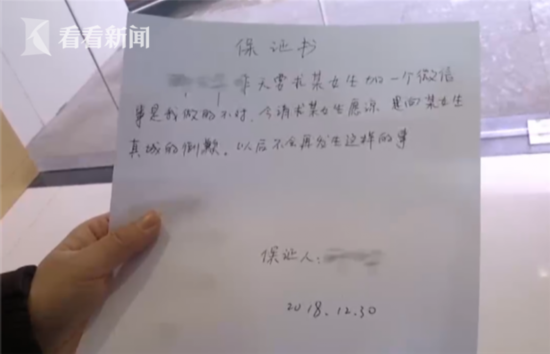 看看新闻
保证书
昨天要求某女生加一个微信
事是我做的不对,今请求某女生原谅,是向某女生
真诚的倒歉。以后不会再发生这样的事
保证人:
2018.12.30